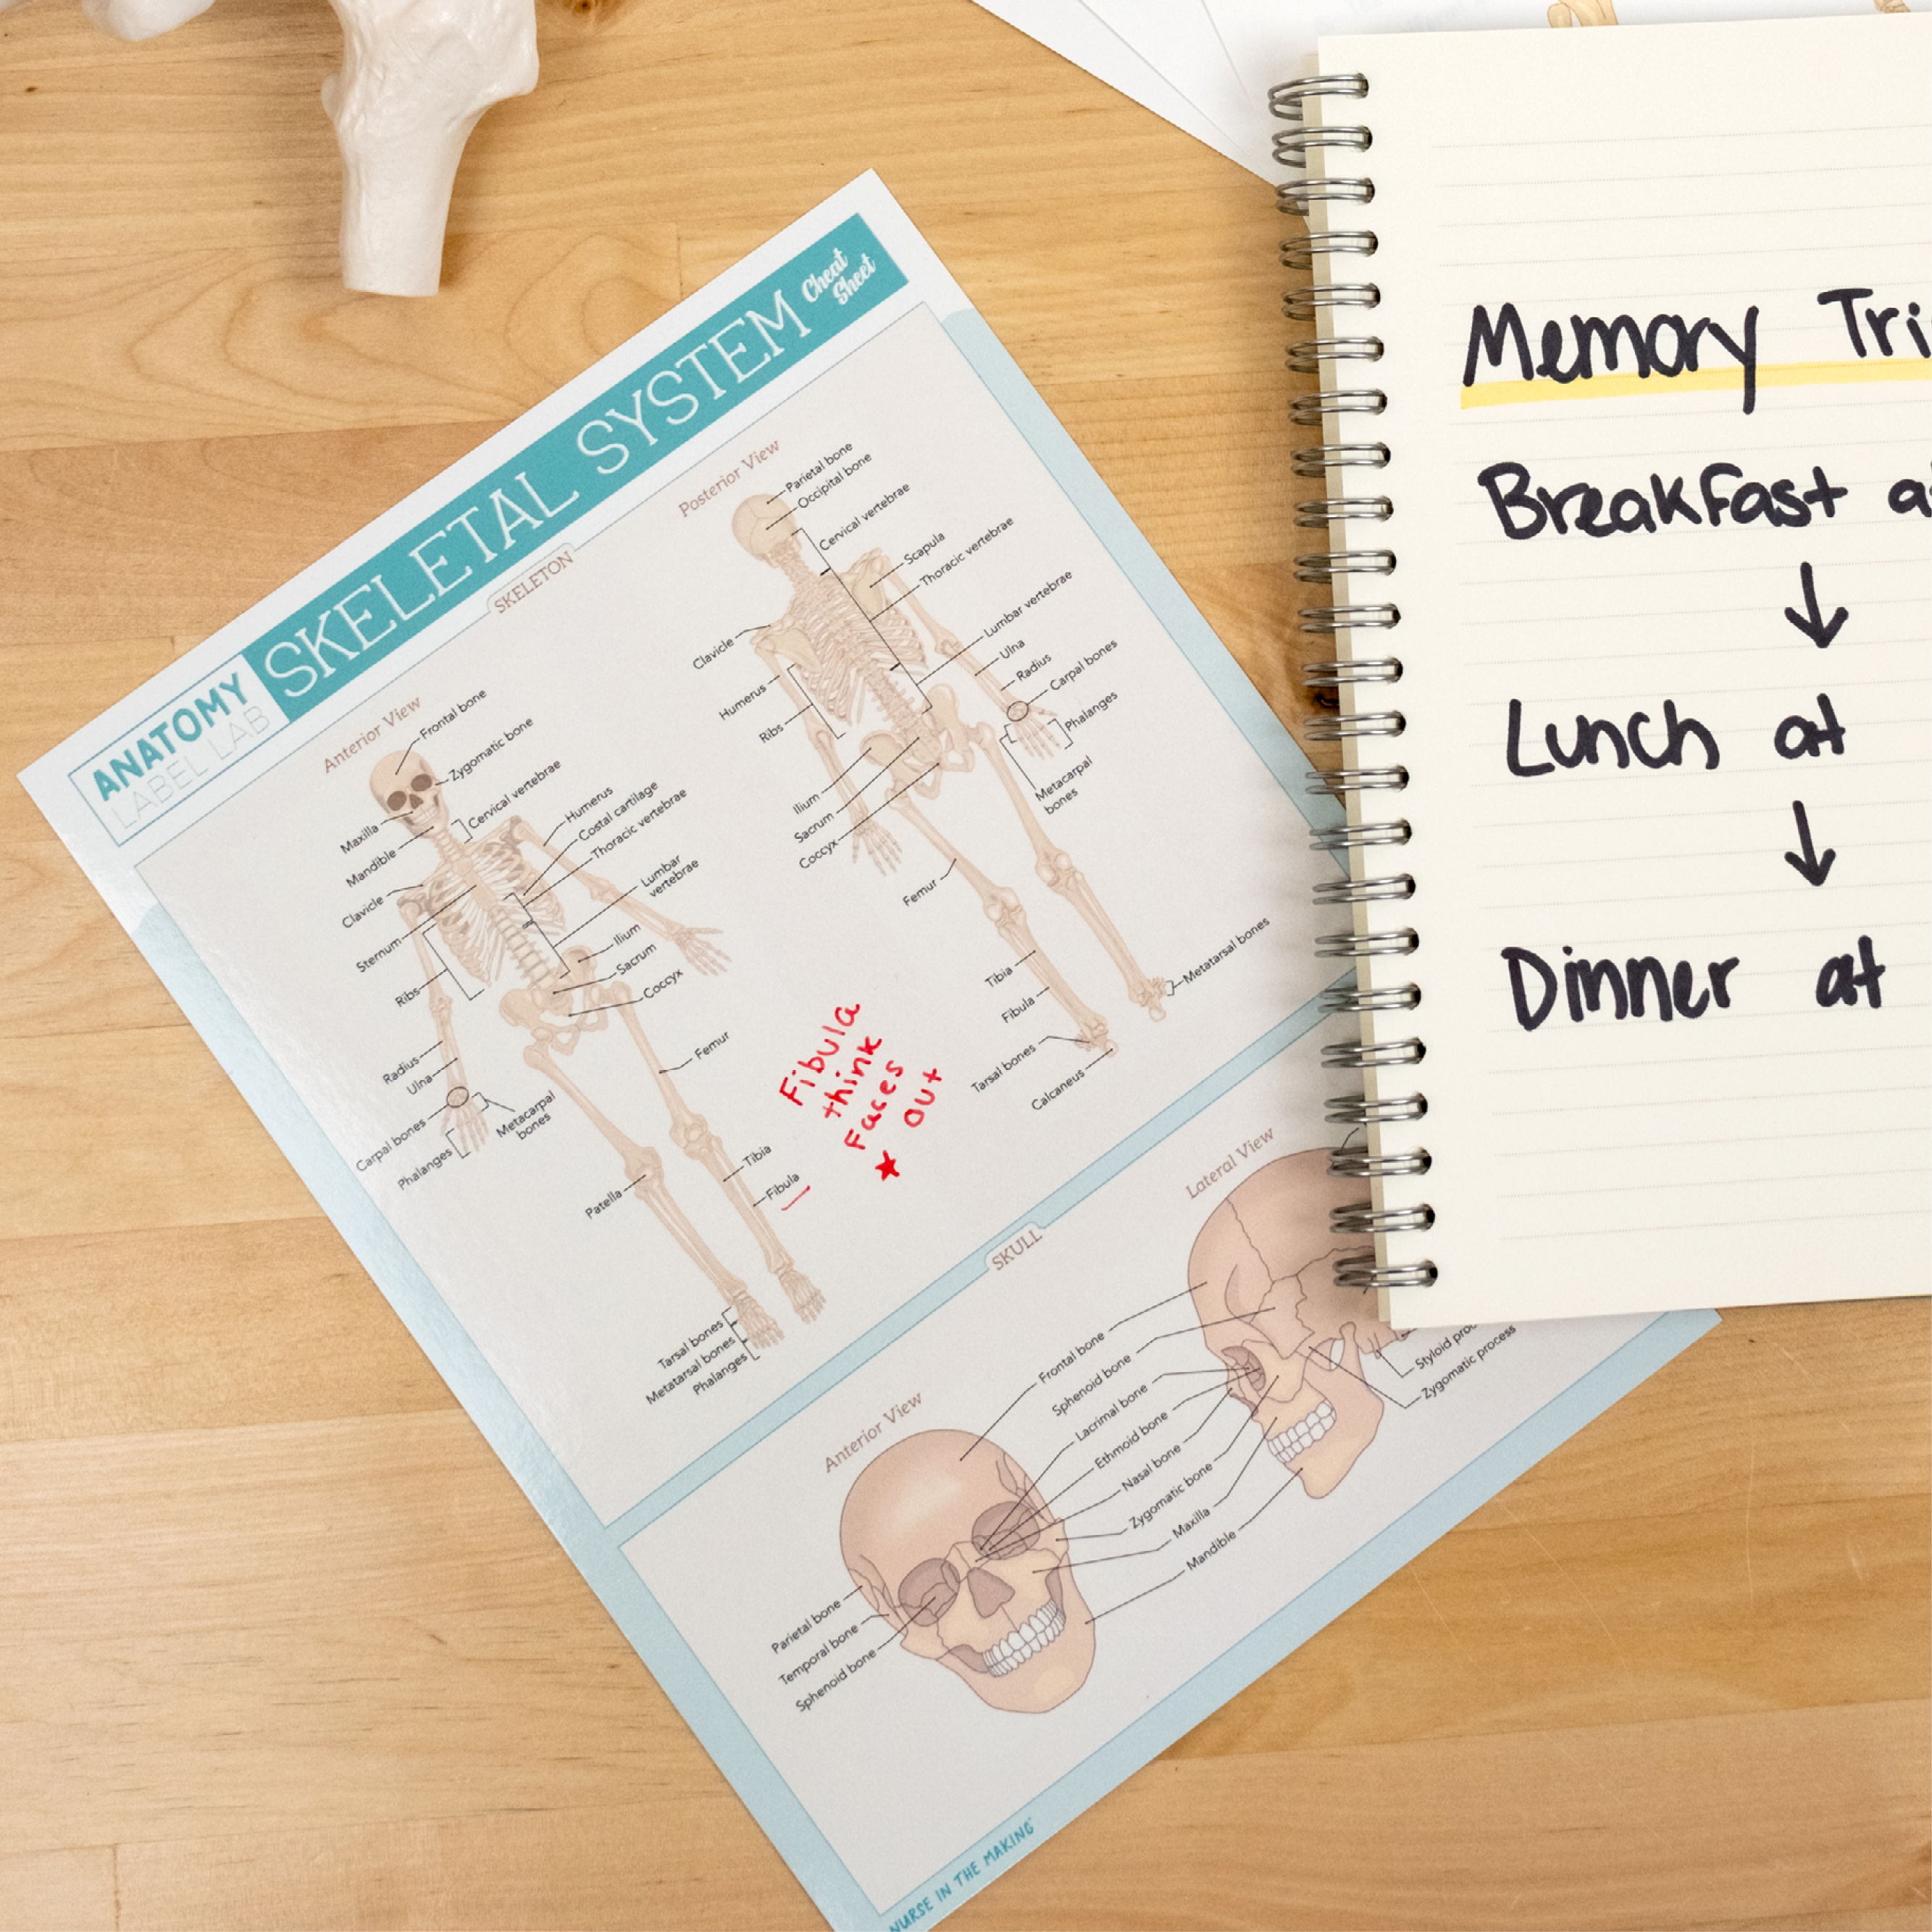 ANATOMY
LABEL LAB
SKELETAL SYSTEM
Cheat
Sheet
SKELETON
Anterior View
Frontal bone
Zygomatic bone
Cervical vertebrae
Humerus
Costal cartilage
Thoracic vertebrae
Lumbar
vertebrae
Ilium
Sacrum
Coccyx
Femur
Tibia
Fibula
Maxilla
Mandible
Clavicle
Sternum
Ribs
Radius
Ulna
Carpal bones
Phalanges
Metacarpal
bones
Patella
Tarsal bones
Metatarsal bones
Phalanges
Posterior View
Parietal bone
Occipital bone
Cervical vertebrae
Scapula
Thoracic vertebrae
Lumbar vertebrae
Ulna
Radius
Carpal bones
Phalanges
Metacarpal
bones
Clavicle
Humerus
Ribs
Ilium
Sacrum
Coccyx
Femur
Tibia
Fibula
Metatarsal bones
Tarsal bones
Calcaneus
Fibula
think
Faces
out
SKULL
Anterior View
Lateral View
Frontal bone
Sphenoid bone
Lacrimal bone
Ethmoid bone
Nasal bone
Zygomatic bone
Maxilla
Mandible
Parietal bone
Temporal bone
Sphenoid bone
Styloid
Zygomatic process
NURSE IN THE MAKING
Memory
Breakfast
Lunch at
Dinner at